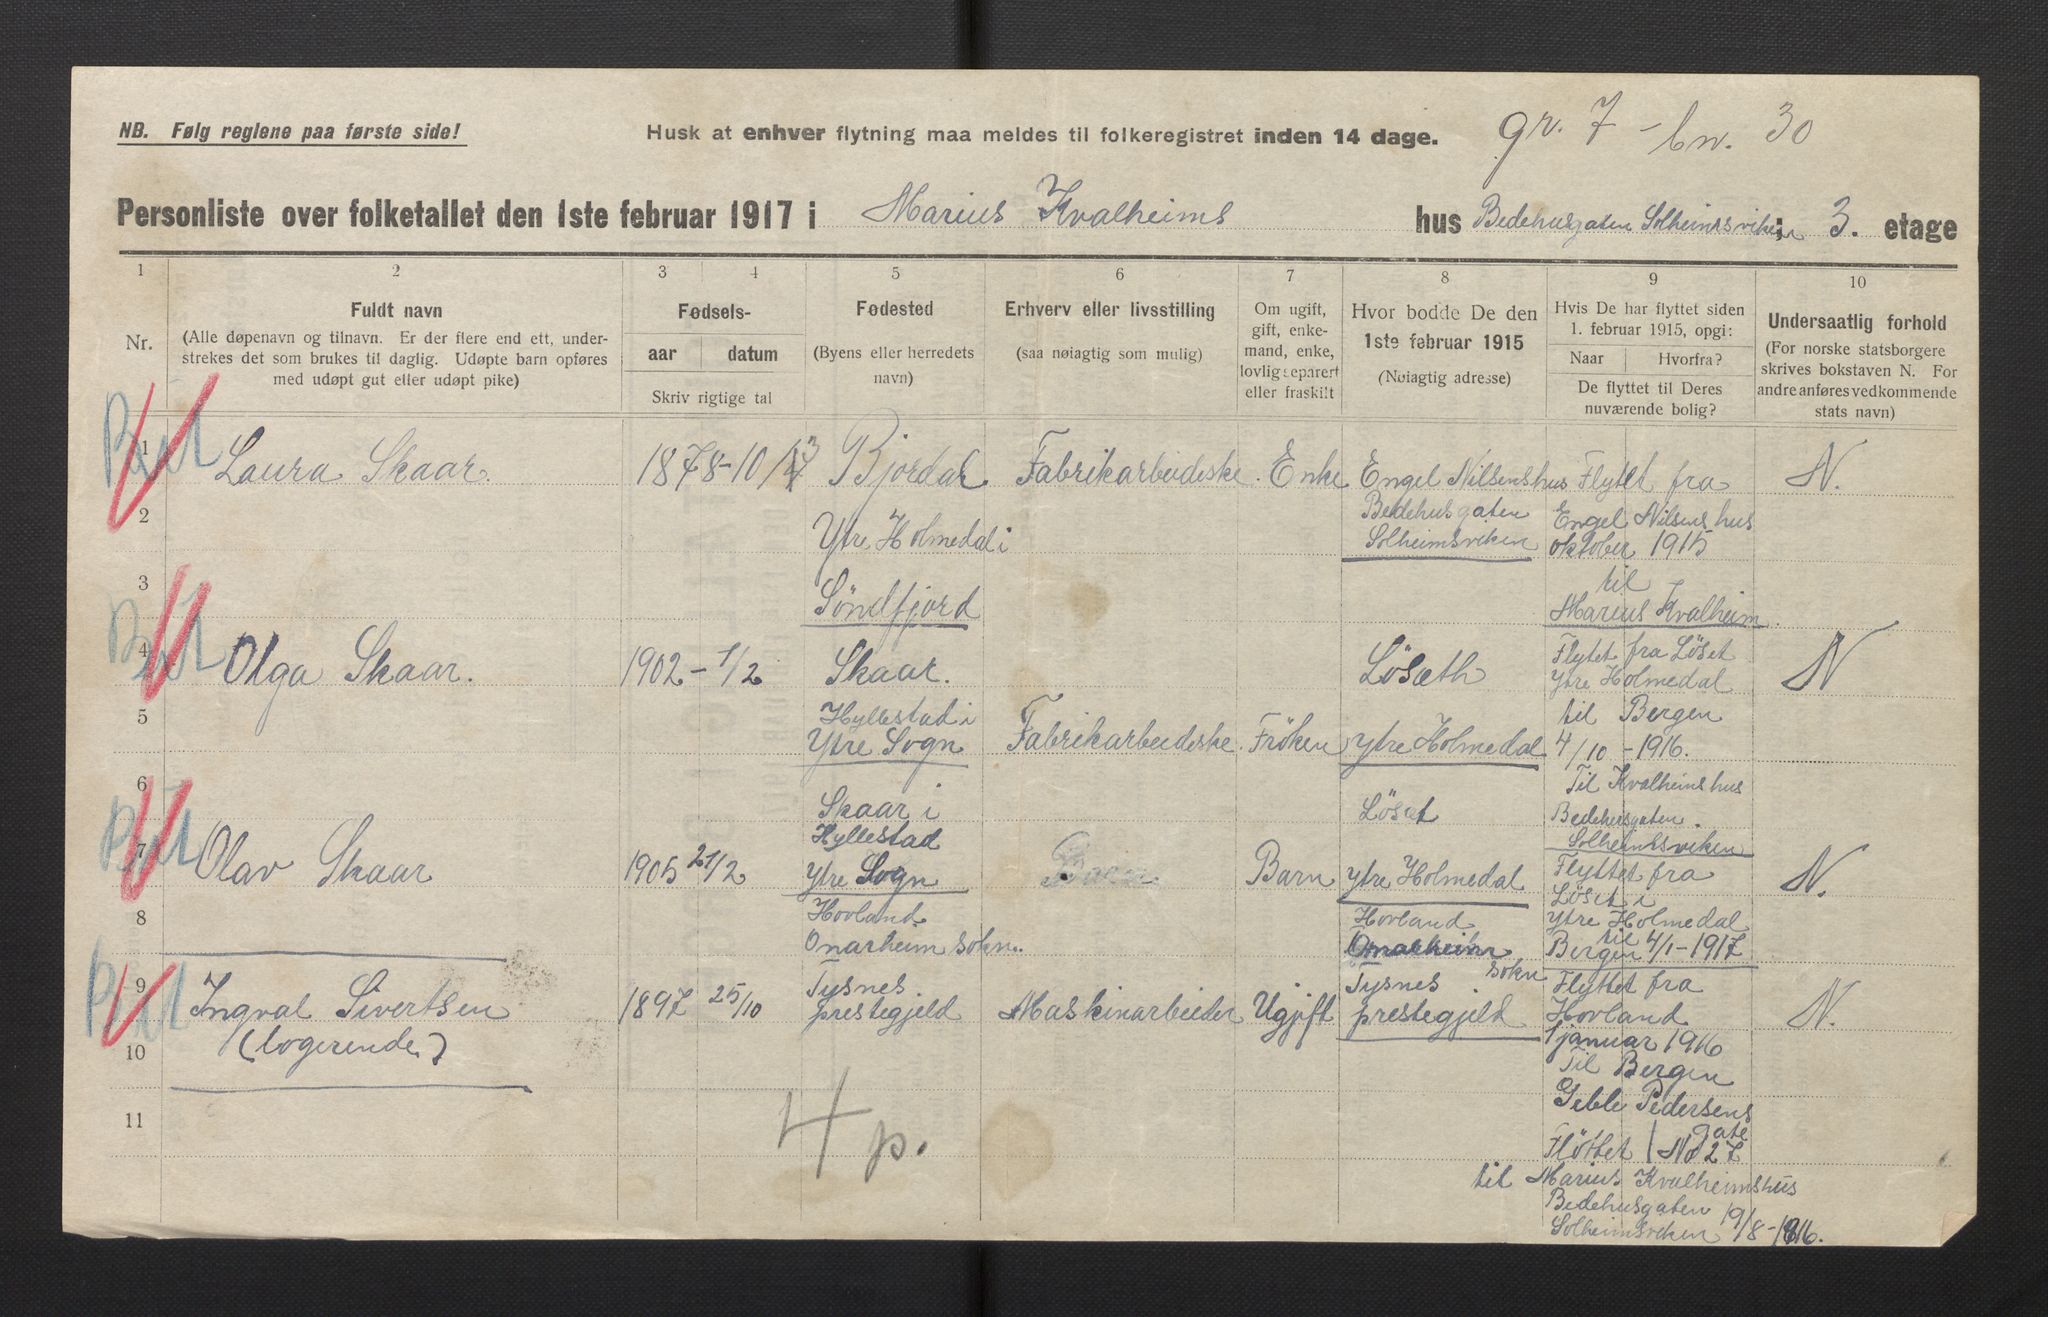 NB. Følg reglene paa første side!
Husk at enhver flytning maa meldes til folkeregistret inden 14 dage.
gr. 7 - bn. 30
Personliste over folketallet den 1ste februar 1917 i Marius Kvalheims hus Bedehusgaten Solheimsviken; 3. etage
1 2 3 4 5 6 7 8 9 10
Nr.
Fuldt navn
(Alle døpenavn og tilnavn. Er der flere end ett, under-
strekes det som brukes til daglig. Udøpte barn opføres
med udøpt gut eller udøpt pike)
Fødsels-
aar datum
Skriv rigtige tal
Fødested
(Byens eller herredets
navn)
Erhverv eller livsstilling
(saa nøiagtig som mulig)
Om ugift,
gift, enke-
mand, enke,
lovlig separert
eller fraskilt
Hvor bodde De den
1ste februar 1915
(Nøiagtig adresse)
Hvis De har flyttet siden
1. februar 1915, opgi:
Naar Hvorfra?
De flyttet til Deres
nuværende bolig?
Undersaatlig forhold
(For norske statsborgere
skrives bokstaven N. For
andre anføres vedkommende
stats navn)
1
Laura Skaar.
1878-10/
Bjordal
Ytre Holmedal i
Söndfjord
Fabrikarbeideske.
Enke
Engel Nilsens hus
Bedehusgaten
Solheimsviken
Flytet fra
Engel Nilsens hus
oktober 1915
til
Marius Kvalheim.
N.
2
3
4
Olga Skaar.
1902-1/2
Skaar.
Hyllestad i
Ytre Sogn
Fabrikarbeideske.
Fröken
Lösæth
ytre Holmedal
Flytet fra Löset
Ytre Holmedal
til Bergen
4/10-1916.
Til Kvalheims hus
Bedehusgaten.
Solheimsviken
N
5
6
7
Olav Skaar
1905 21/2
Skaar i
Hyllestad
Ytre Sogn
Barn
Barn
Löset
ytre Holmedal
Flyttet fra
Löset i
Ytre Holmedal
til
Bergen 4/1-1917
N.
8
9
Ingval Sivertsen
(logerende)
1897 25/10
Hovland
Onarheim sokn.
Tysnes
prestegjeld
Maskinarbeider
Ugjift
Hovland
Onarheim
sokn
Tysnes
prestegjeld
Flyttet fra
Hovland
januar 1916
Til Bergen
Geble Pedersens
gate
No 27
Flöttet
til Marius Kvalheims hus
Bedehusgaten
Solheimsviken 19/8-1916.
N.
10
11
4 p.